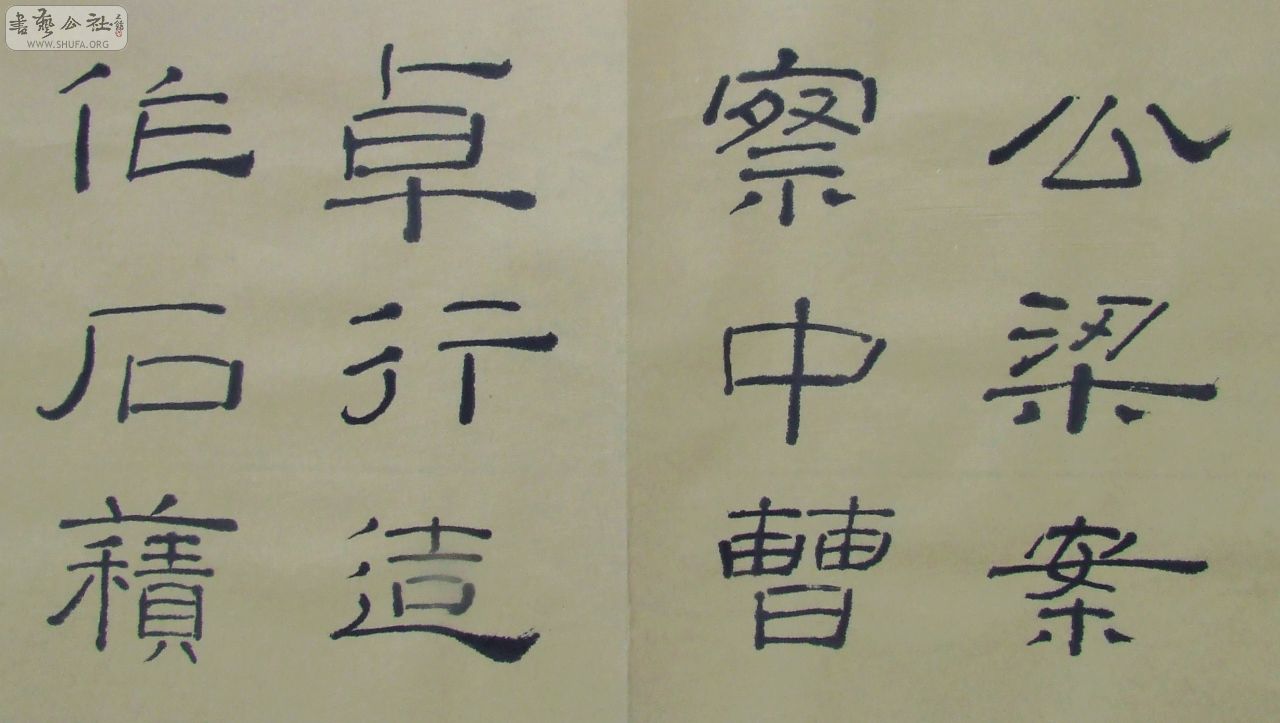 公梁案
察中曹
卓行造
作石積
書藝公社
WWW.SHUFA.ORG